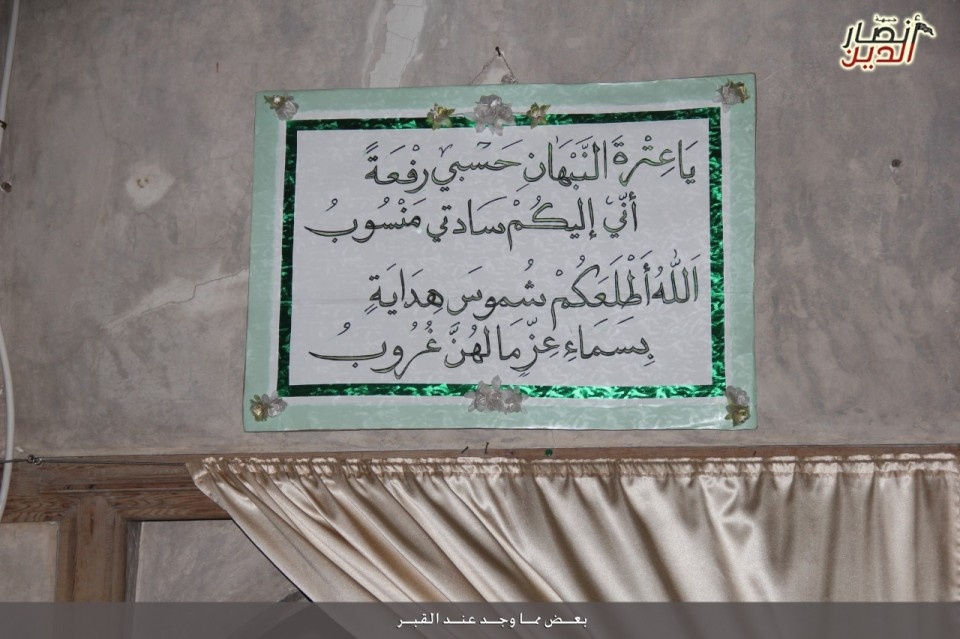 جبهة
أنصار
الدين
يَا عِتْرَةَ النَّبْهَانِ حَسْبِي رِفْعَةً
أَنّي إِليكُمْ سَادتي مَنْسُوبُ
اَللّٰهُ أَطْلَعَكُمْ شُموسَ هِدَايَةٍ
بِسَمَاءِ عِزٍّ مَا لَهُنَّ غُرُوبُ
بعض مما وجد عند القبر